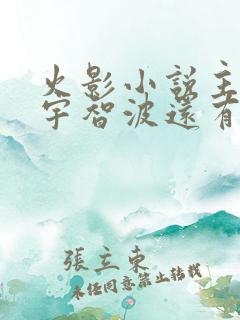 火影小說主
宇智波還有
張立東
未经同意禁止转载